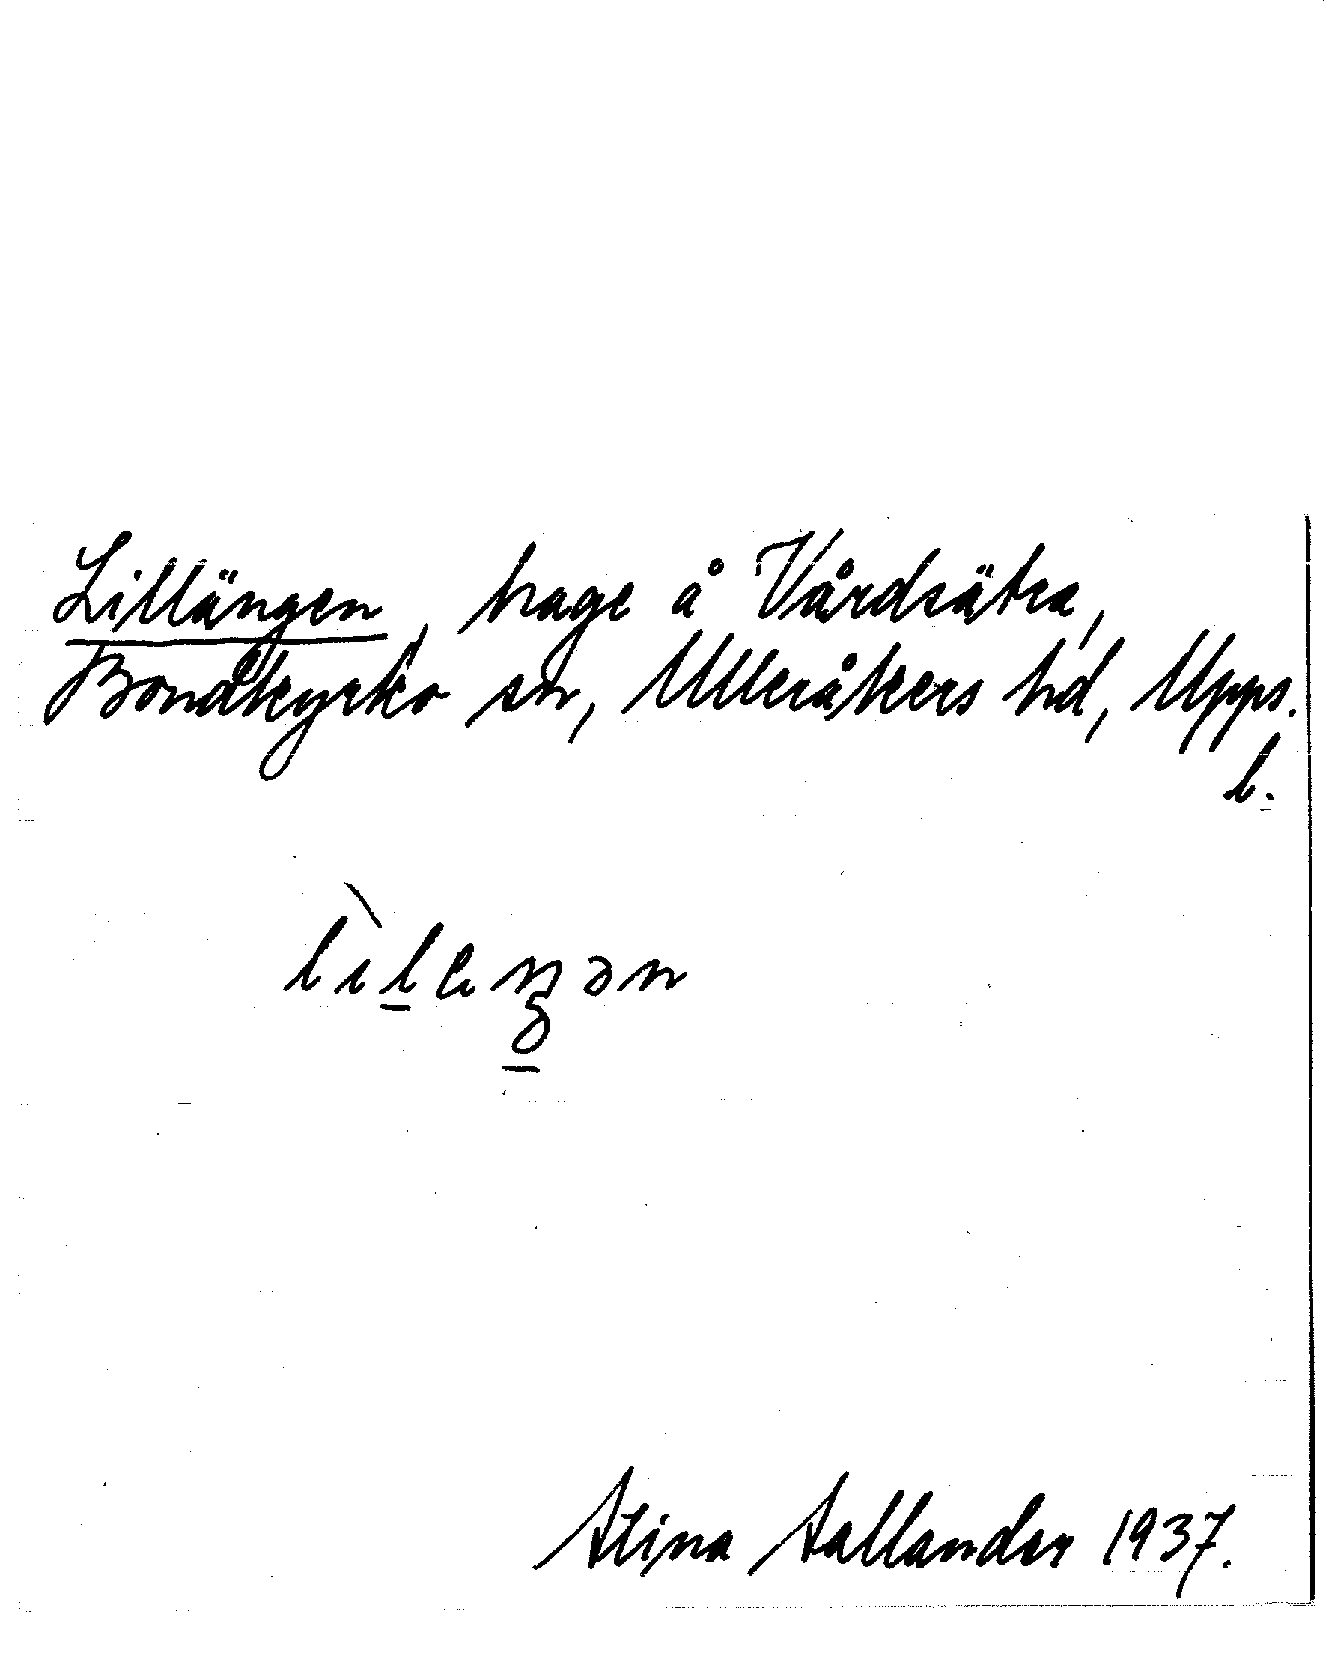 Lillängen, hage å Vårdsätra,
Bondkyrko sn, Ulleråkers hd, Upps.
l.
Stina Sallander 1937.